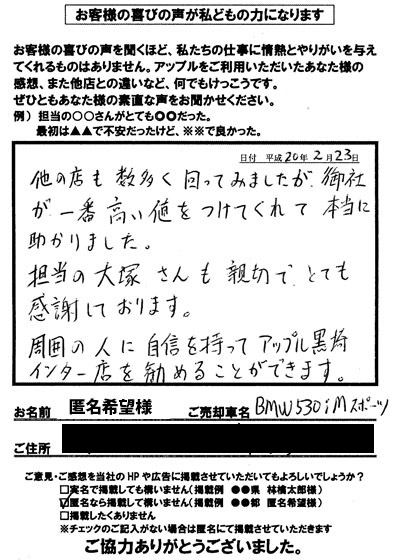 お客様の喜びの声が私どもの力になります
お客様の喜びの声を聞くほど、私たちの仕事に情熱とやりがいを与え
てくれるものはありません。アップルをご利用いただいたあなた様の
感想、また他店との違いなど、何でもけっこうです。
ぜひともあなた様の素直な声をお聞かせください。
例）担当の○○さんがとても○○だった。
最初は▲▲で不安だったけど、※※で良かった。
日付 平成20年2月23日
他の店も数多く回ってみましたが、御社
が一番高い値をつけてくれて本当に
助かりました。
担当の大塚さんも親切で、とても
感謝しております。
周囲の人に自信を持ってアップル黒埼
インター店を勧めることができます。
お名前 匿名希望様 ご売却車名 BMW530iMスポーツ
ご住所
ご意見・ご感想を当社のHPや広告に掲載させていただいてもよろしいでしょうか？
□実名で掲載しても構いません（掲載例 ●●県 林檎太郎様）
☑匿名なら掲載して構いません（掲載例 ●●都 匿名希望様）
□掲載したくありません
※チェックのご記入がない場合は匿名にて掲載させていただきます
ご協力ありがとうございました。